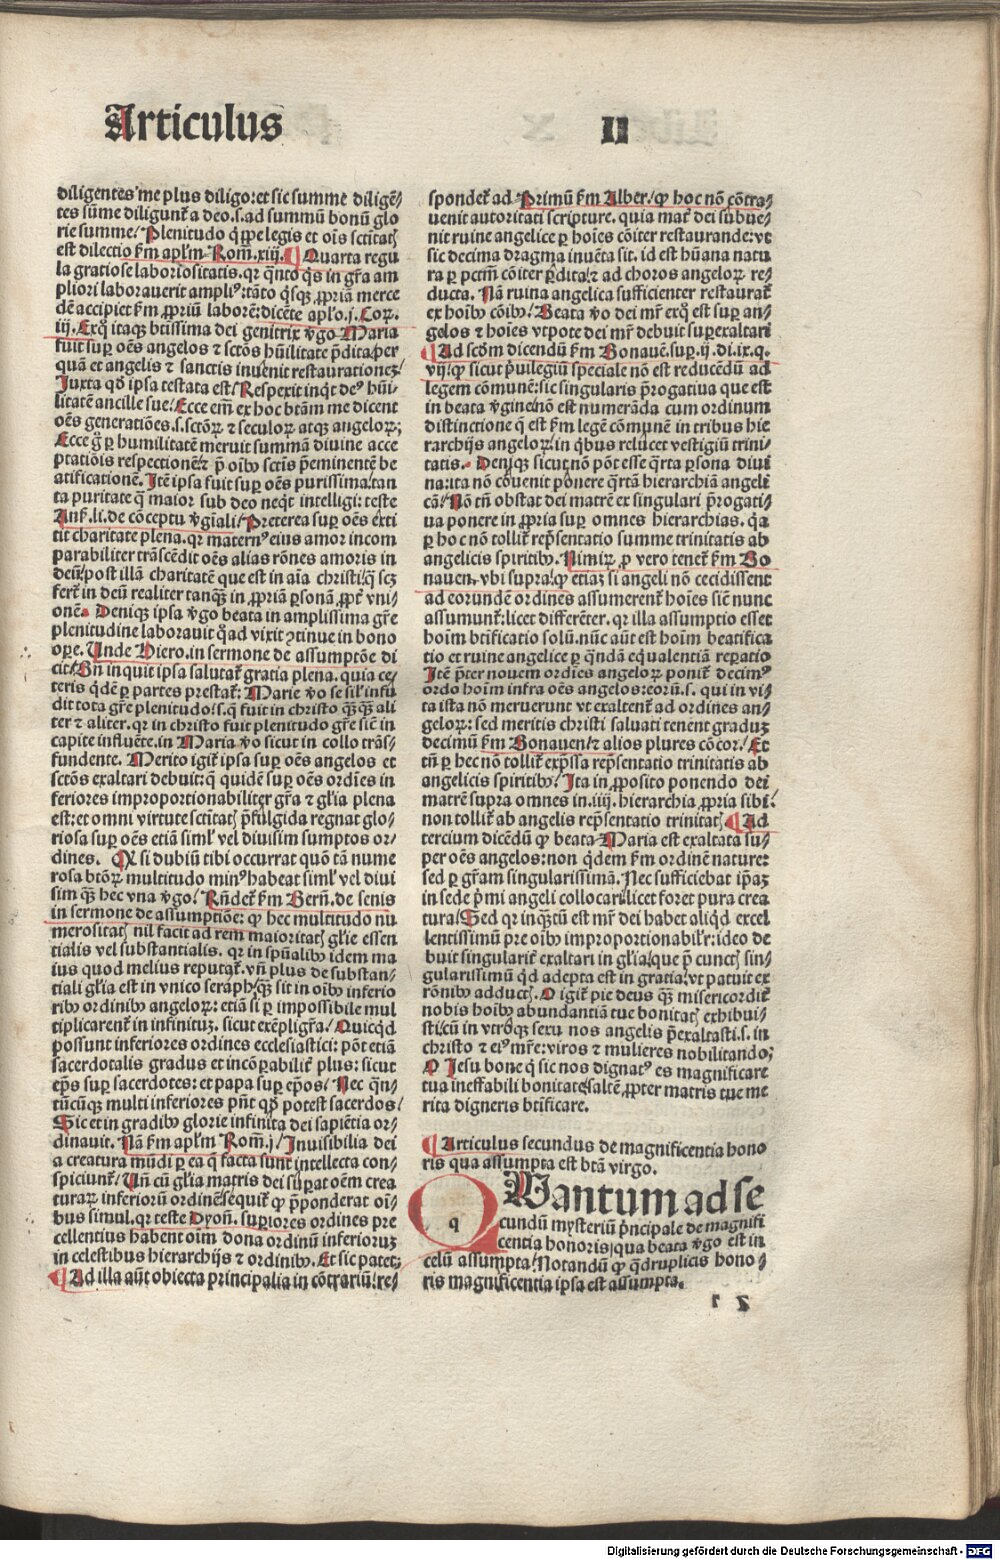 Articulus II
diligentes me plus diligo: et sic summe diligē/
tes sūme diligunt̄ a deo.s. ad summū bonū glo
rie summe/ Plenitudo q̇ ꝓpe legis et oīs sctītatꝭ
est dilectio ẜm apl̄m Rom̄.xiij. ¶ Quarta regu
la gratiose laboriositatis. qꝛ qͣnto qͥs in gr̄a am
pliori laborauerit ampliꝰ: tāto qͥsqꝫ ꝓpriā merce
dē accipiet ẜm ꝓpriū laborē: dicēte apl̄o .j. Coꝝ.
iij. Exq̇ itaqꝫ btīssima dei genitrix v̄go Maria
fuit suꝑ oēs angelos ⁊ sctōs hūilitate p̄dita/ per
quā et angelis ⁊ sanctis inuenit restaurationeꝫ/
Juxta qd̄ ipsa testata est/ Respexit inqͥt deꝰ hūi
litatē ancille sue/ Ecce em̄ ex hoc btām me dicent
oēs generatiōes .s. sctōꝝ ⁊ seculoꝝ atqꝫ angeloꝝ:
Ecce g̊ ꝑ humilitatē meruit summā diuine acce
ptatiōis respectionē/ ⁊ p̄ oīb9 sctīs p̄eminentē be
atificationē. Itē ipsa fuit suꝑ oēs purissima/ tan
ta puritate q̄ maior sub deo neqͥt intelligi: teste
Ansẽ. li. de cōceptu v̄gīali/ Preterea suꝑ oēs exti
tit charitate plena. qꝛ maternꝰ eius amor incom
parabiliter trāscēdit oēs alias rōnes amoris in
deū/ post illā charitatē que est in aīa christi/ q̄ scꝫ
fert̄ in deū realiter tanqꝫ in ꝓpriā ꝑsonā, ꝓpt̄ vni/
onē. Deniqꝫ ipsa v̄go beata in amplissima gr̄e
plenitudine laborauit qͣad vixit ꝯtinue in bono
oꝑe. Unde Hiero. in sermone de assumptōe di
cit/ Bn̄ inquit ipsa salutat̄ gratia plena. quia ce/
teris qͥdē ꝑ partes prestat̄: Marie v̄o se sil̄ infū
dit tota gr̄e plenitudo/ .s. q̄ fuit in christo qͣꝫqͣꝫ ali
ter ⁊ aliter. qꝛ in christo fuit plenitudo gr̄e sic̄ in
capite influēte. in Maria v̄o sicut in collo trās/
fundente. Merito igit̄ ipsa suꝑ oēs angelos et
sctōs exaltari debuit: q̄ quidē suꝑ oēs ordīes in
feriores improportionabiliter gr̄a ⁊ gl̄ia plena
est: et omni virtute sctītatꝭ p̄fulgida regnat glo/
riosa suꝑ oēs etiā siml̄ vel diuisim sumptos or/
dines. Qꝫ si dubiū tibi occurrat quō tā nume
rosa btōꝝ multitudo minꝰ habeat siml̄ vel diui
sim qͣꝫ hec vna v̄go/ Rn̄det̄ ẜm Bern̄. de senis
in sermone de assumptiōe: ꝙ hec multitudo nu
merositatꝭ nil facit ad rem maioritatꝭ gl̄ie essen
tialis vel substantialis. qꝛ in spūalib9 idem ma
ius quod melius reputat̄. vn̄ plus de substan/
tiali gl̄ia est in vnico seraph/ qͣꝫ sit in oīb9 inferio
rib9 ordinib9 angeloꝝ: etiā si ꝑ impossibile mul
tiplicarent̄ in infinituꝫ. sicut exēpligr̄a/ Quicqͥd
possunt inferiores ordines ecclesiastici: pōt etiā
sacerdotalis gradus et incōꝑabilit̄ plus: sicut
ep̄s suꝑ sacerdotes: et papa suꝑ ep̄os/ Nec qͣn/
tūcūqꝫ multi inferiores pn̄t qd̄ potest sacerdos/
Sic et in gradib9 glorie infinita dei sapiētia or/
dinauit. Nā ẜm apl̄m Rom̄.j/ Inuisibilia dei
a creatura mūdi ꝑ ea q̄ facta sunt intellecta con/
spiciunt̄/ Un̄ cū gl̄ia matris dei suꝑat oēm crea
turaꝝ inferiorū ordinē/ seqͥuit̄ ꝙ p̄ponderat oī/
bus simul. qꝛ teste Dyon̄. suꝑiores ordines pre
cellentius habent oīm dona ordinū inferioruꝫ
in celestibus hierarchijs ⁊ ordinib9. Et sic patet:
¶ Ad illa aūt obiecta principalia in cōtrariū: re/
spondet̄ ad Primū ẜm Alber./ ꝙ hoc nō cōtra/
uenit autoritati scripture. quia mat̄ dei subue/
nit ruine angelice ꝑ hoīes cōiter restaurande: vt
sic decima dragma inuēta sit. id est hūana natu
ra ꝑ pctm̄ cōiter ꝑdita/ ⁊ ad choros angeloꝝ re/
ducta. Nā ruina angelica sufficienter restaurat̄
ex hoīb9 cōib9/ Beata v̄o dei mr̄ exq̇ est suꝑ an/
gelos ⁊ hoīes vtpote dei mr̄ debuit suꝑexaltari
¶ Ad scd̄m dicendū ẜm Bonauē. suꝑ .ij. di. ix. q.
vij/ ꝙ sicut p̄uilegiū speciale nō est reducēdū ad
legem cōmunē: sic singularis p̄rogatiua que est
in beata v̄gine/ nō est numerāda cum ordinum
distinctione q̄ est ẜm legē cōmunē in tribus hie
rarchijs angeloꝝ/ in qͥbus relucet vestigiū trini/
tatis. Deniqꝫ sicut nō pōt esse qͣrta ꝑsona diui
na: ita nō cōuenit ponere qͣrtā hierarchiā angeli
cā/ Nō tn̄ obstat dei matrē ex singulari p̄rogati/
ua ponere in ꝓpria suꝑ omnes hierarchias. qͥa
ꝑ hoc nō tollit̄ rep̄sentatio summe trinitatis ab
angelicis spiritib9. Nimiꝝ ꝓ vero tenet̄ ẜm Bo
nauen. vbi supra/ ꝙ etiaꝫ si angeli nō cecidissent
ad eorundē ordines assumerent̄ hoīes sic̄ nunc
assumunt̄: licet differēter. qꝛ illa assumptio esset
hoīm btīficatio solū. nūc aūt est hoīm beatifica
tio et ruine angelice ꝑ qͣndā eq̇ualentiā reꝑatio
Itē p̄ter nouem ordines angeloꝝ ponit̄ decimꝰ
ordo hoīm infra oēs angelos: eoꝝ .s. qui in vi/
ta ista nō meruerunt vt exaltent̄ ad ordines an/
geloꝝ: sed meritis christi saluati tenent graduꝫ
decimū ẜm Bonauen/ ⁊ alios plures cōcor./ Et
tn̄ ꝑ hec nō tollit̄ exp̄ssa rep̄sentatio trinitatis ab
angelicis spiritib9/ Ita in ꝓposito ponendo dei
matrē supra omnes in .iiij. hierarchia ꝓpria sibi/
non tollit̄ ab angelis rep̄sentatio trinitatꝭ ¶ Ad
tercium dicēdū ꝙ beata Maria est exaltata su/
per oēs angelos: non qͥdem ẜm ordinē nature:
sed ꝑ gr̄am singularissimā. Nec sufficiebat ip̄aꝫ
in sede p̄mi angeli collocari/ licet foret pura crea
tura/ Sed qꝛ inqͣꝫtū est mr̄ dei habet aliqͥd excel
lentissimū pre oīb9 improportionabilr̄: ideo de
buit singularit̄ exaltari in gl̄ia/ que p̄ cunctꝭ sin/
gularissimū qͥd adepta est in gratia/ vt patuit ex
rōnib9 adductꝭ. O igit̄ pie deus qͣꝫ misericordit̄
nobis hoīb9 abundantiā tue bonitatꝭ exhibui/
sti/ cū in vtroqꝫ sexu nos angelis p̄exaltasti .s. in
christo ⁊ eiꝰ mr̄e: viros ⁊ mulieres nobilitando:
O Jesu bone q̇ sic nos dignatꝰ es magnificare
tua ineffabili bonitate/ saltē ꝓpter matris tue me
rita digneris btīficare.
¶ Articulus secundus de magnificentia hono
ris qua assumpta est btā virgo.
q QUantum ad se
cundū mysteriū p̄ncipale de magnifi
centia honoris/ qua beata v̄go est in
celū assumpta/ Notandū ꝙ qͣdruplicis hono/
ris magnificentia ipsa est assumpta.
r 2
Digitalisierung gefördert durch die Deutsche Forschungsgemeinschaft - DFG